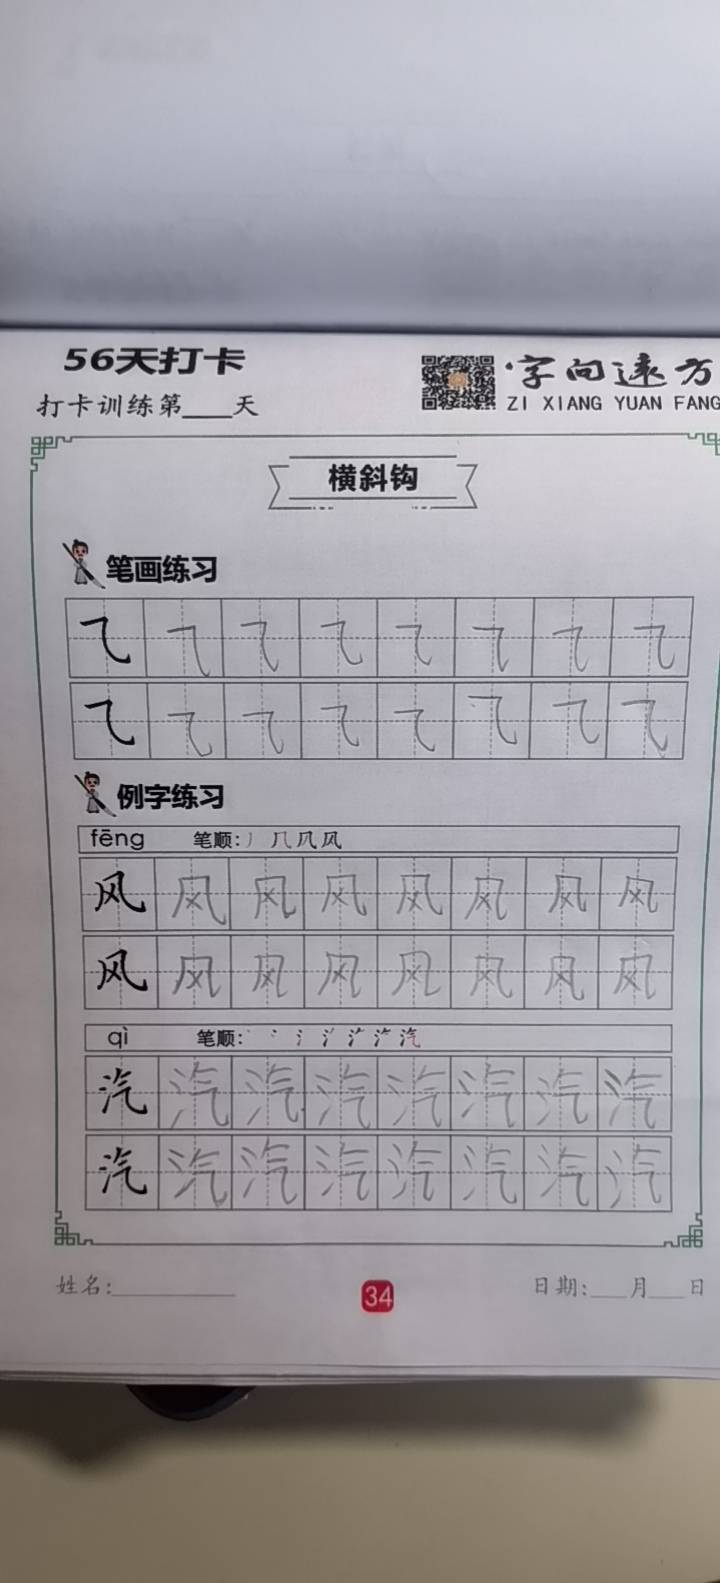 56天打卡
·字向远方
打卡训练第____天
ZI XIANG YUAN FANG
横斜钩
笔画练习
⺄ ⺄ ⺄ ⺄ ⺄ ⺄ ⺄ ⺄
⺄ ⺄ ⺄ ⺄ ⺄ ⺄ ⺄ ⺄
例字练习
fēng 笔顺:丿 几 凤 风
风 风 风 风 风 风 风 风
风 风 风 风 风 风 风 风
qì 笔顺: 汽
汽 汽 汽 汽 汽 汽 汽 汽
汽 汽 汽 汽 汽 汽 汽 汽
姓名:__________
34
日期:___月___日